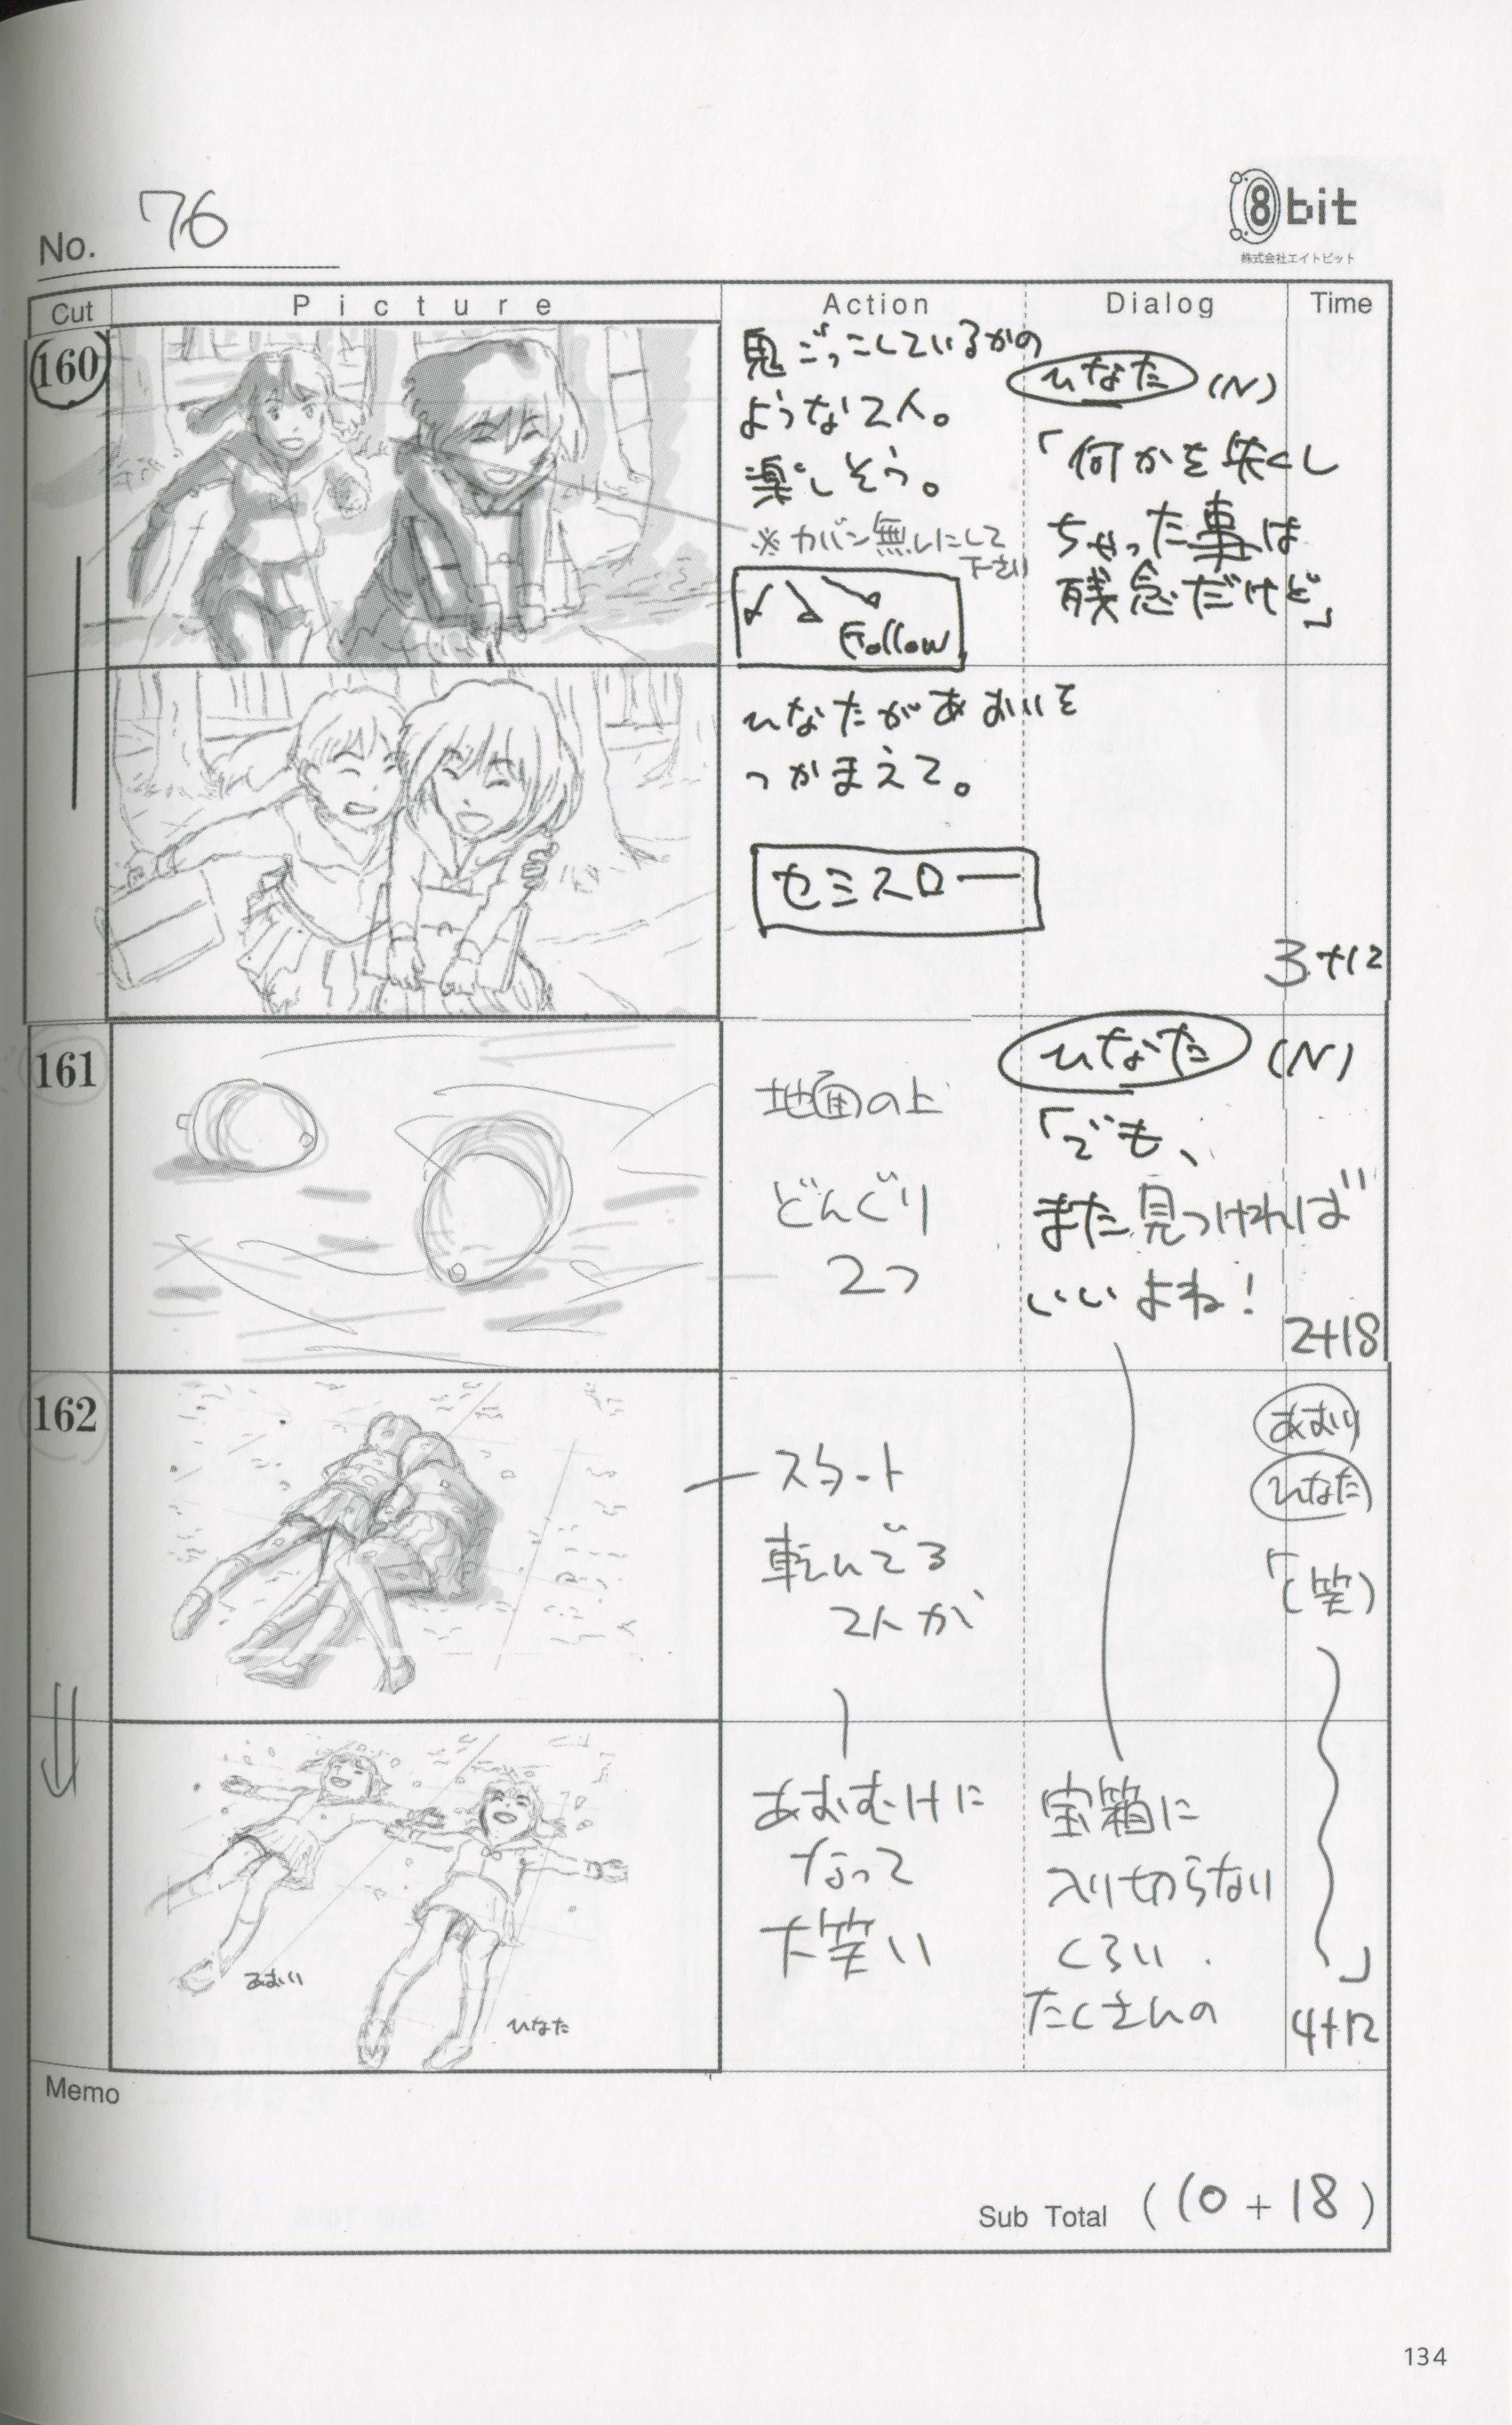 No. 76
8bit
株式会社エイトビット
Cut Picture Action Dialog Time
160
鬼ごっこしているかの
ような2人。
楽しそう。
※カバン無しにして
下さい
Follow
ひなた (N)
「何かを失くし
ちゃった事は
残念だけど」
ひなたがあおいを
つかまえて。
セミスロー
3+12
161
地面の上
どんぐり
2つ
ひなた (N)
「でも、
また見つければ
いいよね!
2+18
162
スタート
転んでる
2人が
あおい
ひなた
「(笑)
あおむけに
なって
大笑い
宝箱に
入り切らない
くらい
たくさんの
」
4+12
あおい
ひなた
Memo
Sub Total (10+18)
134